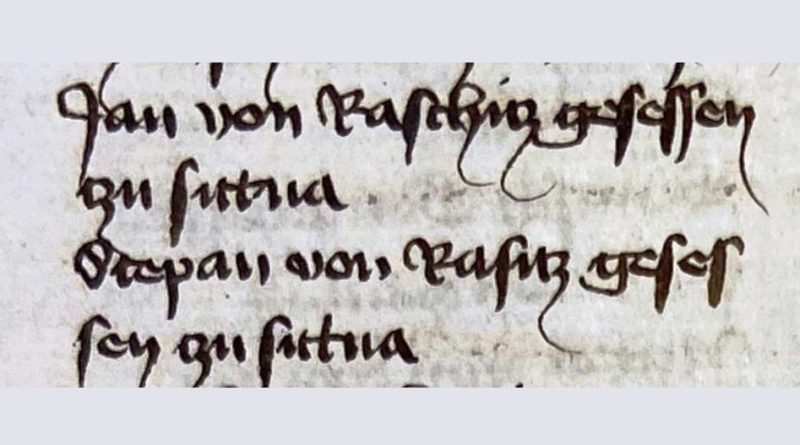 Jan von Raschitz gesessen
tzu sittna
Stepan von Rasitz geses
sen tzu sittna